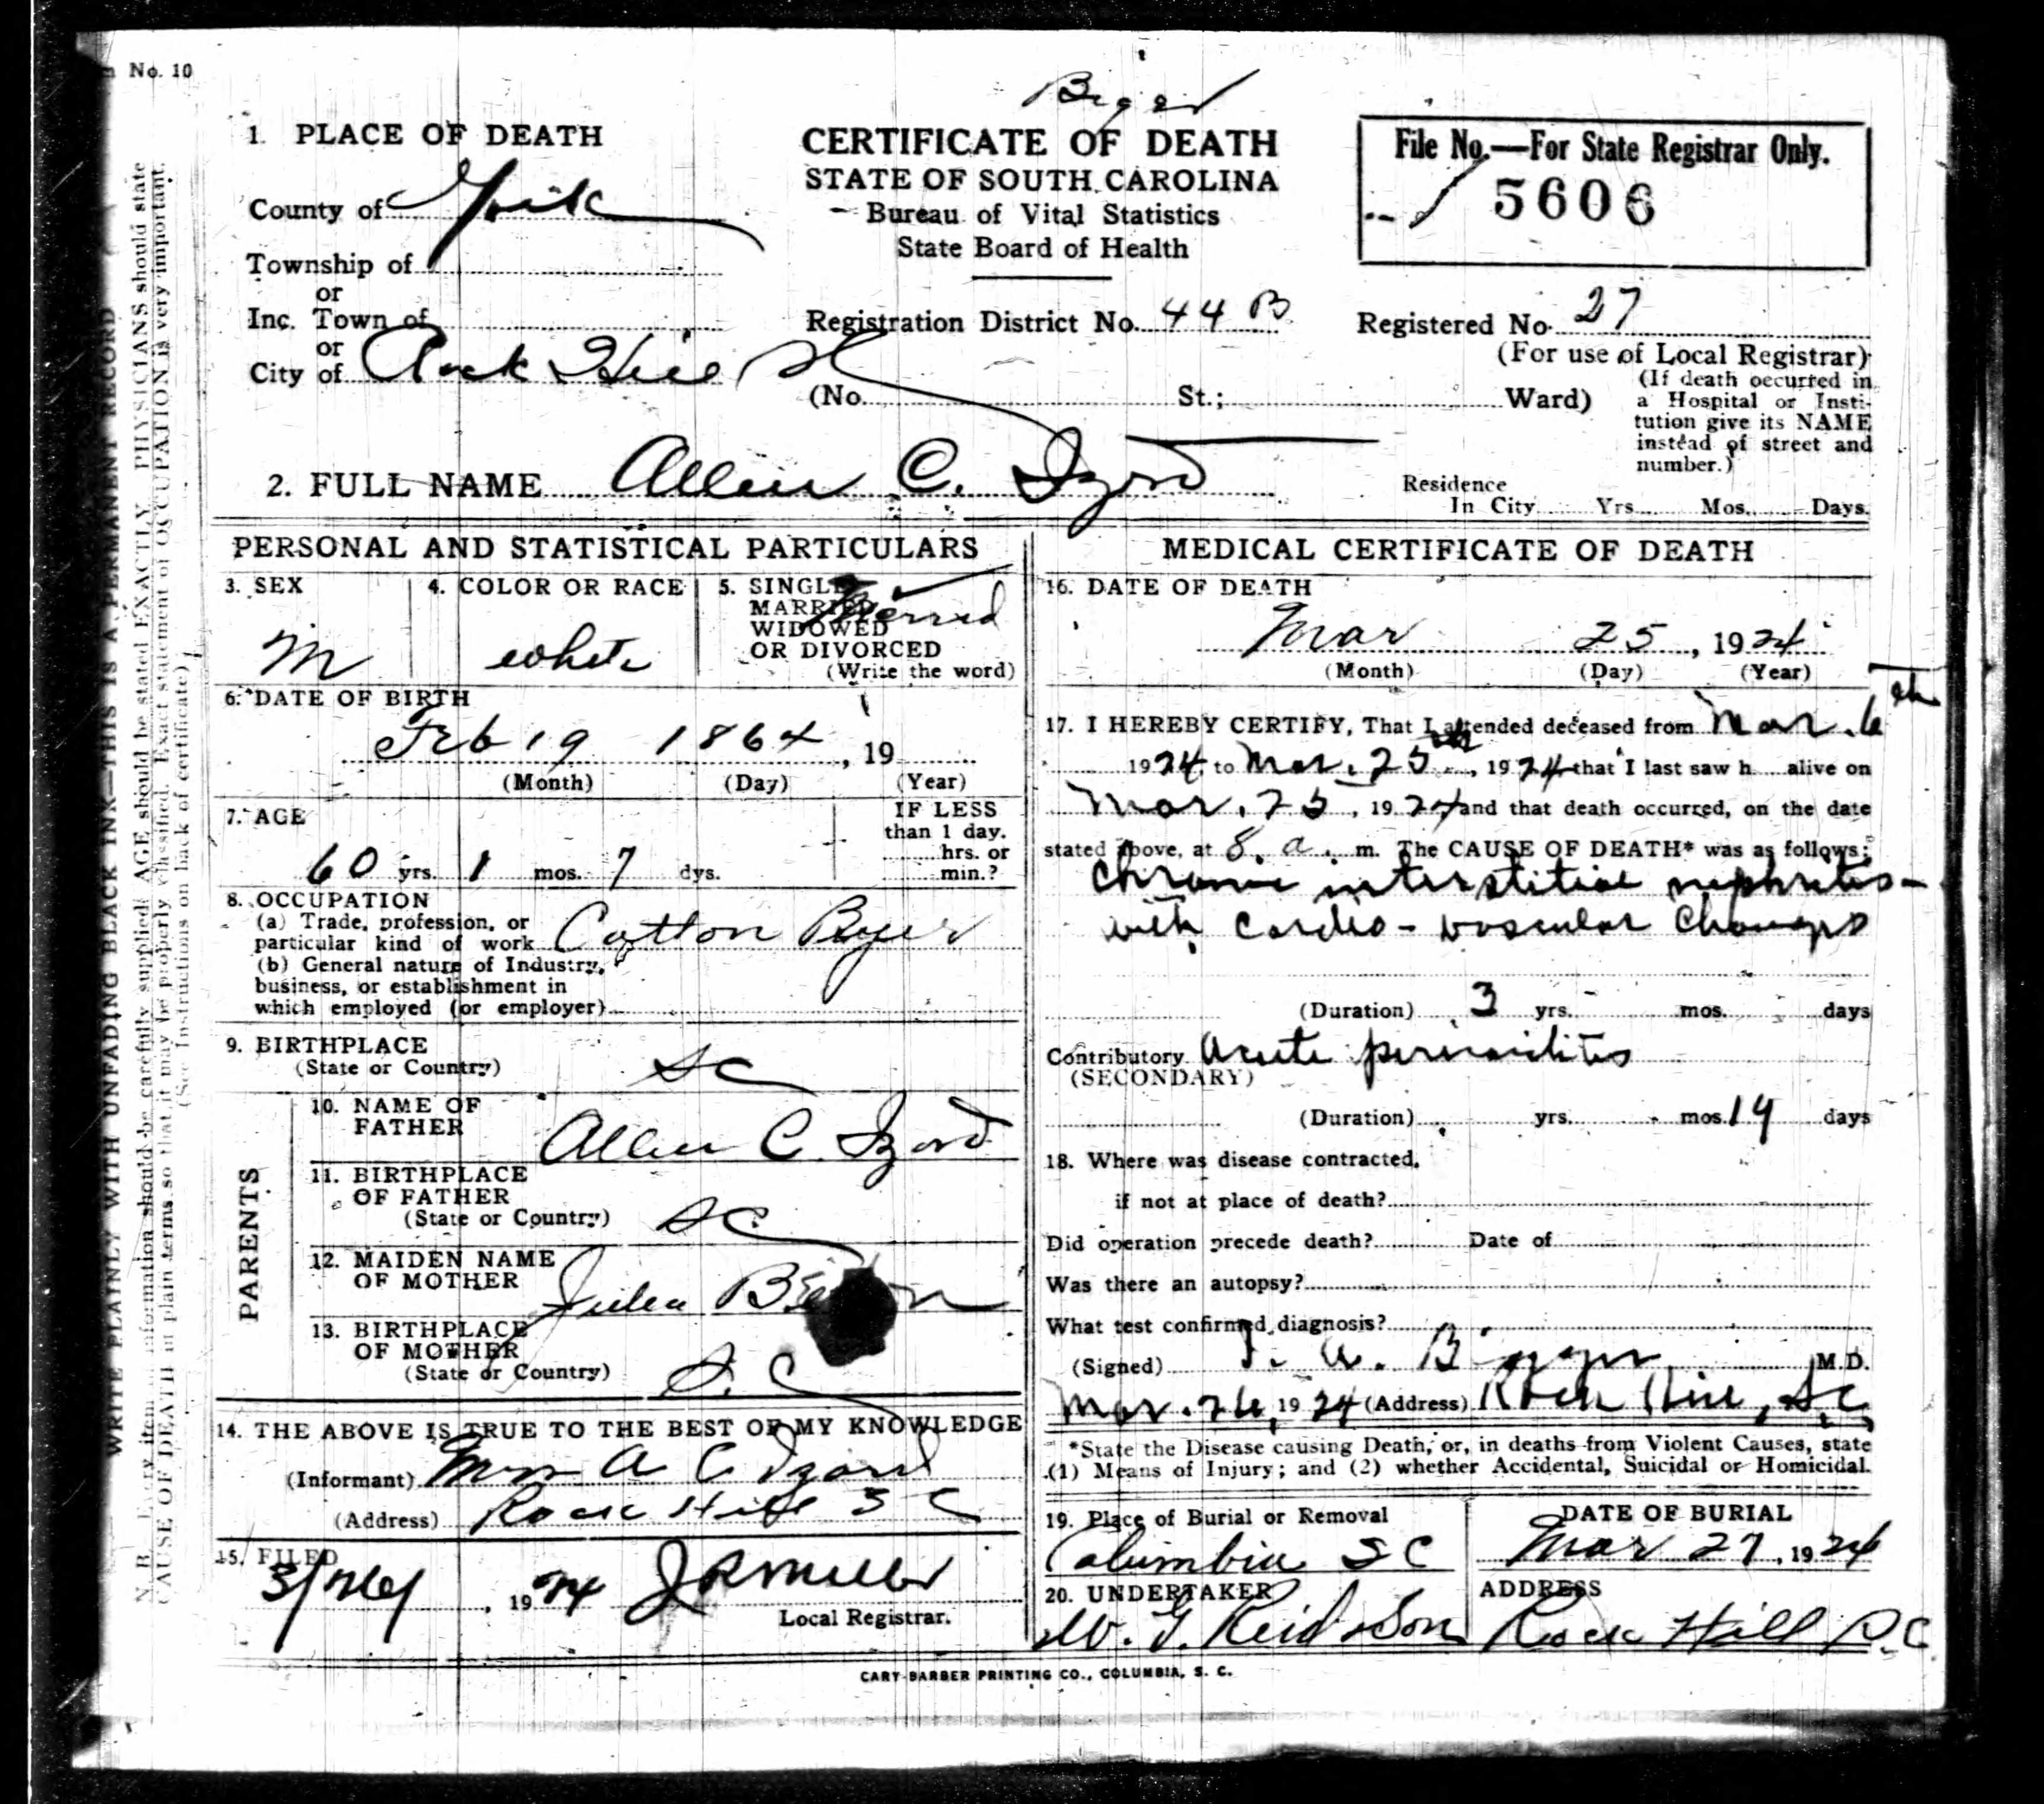 No. 10
1. PLACE OF DEATH
County of York
Township of
or
Inc. Town of
or
City of Rock Hill SC
CERTIFICATE OF DEATH
STATE OF SOUTH CAROLINA
Bureau of Vital Statistics
State Board of Health
Registration District No. 44 B
(No. St.; Ward)
File No.—For State Registrar Only.
5606
Registered No. 27
(For use of Local Registrar)
(If death occurred in
a Hospital or Insti-
tution give its NAME
instead of street and
number.)
2. FULL NAME Allen C. Izard
Residence
In City Yrs. Mos. Days.
PERSONAL AND STATISTICAL PARTICULARS
3. SEX
M
4. COLOR OR RACE
white
5. SINGLE
MARRIED
WIDOWED
OR DIVORCED
(Write the word)
Married
6. DATE OF BIRTH
Feb 19 1864, 19
(Month) (Day) (Year)
7. AGE
60 yrs. 1 mos. 7 dys.
IF LESS
than 1 day.
hrs. or
min.?
8. OCCUPATION
(a) Trade, profession, or
particular kind of work Cotton Byer
(b) General nature of Industry,
business, or establishment in
which employed (or employer)
9. BIRTHPLACE
(State or Country) SC
PARENTS
10. NAME OF
FATHER Allen C. Izard
11. BIRTHPLACE
OF FATHER
(State or Country) SC
12. MAIDEN NAME
OF MOTHER Julea
13. BIRTHPLACE
OF MOTHER
(State or Country) S.C
14. THE ABOVE IS TRUE TO THE BEST OF MY KNOWLEDGE
(Informant) Mrs A C Izard
(Address) Rock Hill S C
15. FILED
3/26, 1924 J R Miller
Local Registrar.
MEDICAL CERTIFICATE OF DEATH
16. DATE OF DEATH
Mar 25, 1924
(Month) (Day) (Year)
17. I HEREBY CERTIFY, That I attended deceased from Mar. 6th
1924, to Mar. 25th, 1924 that I last saw h alive on
Mar. 25, 1924 and that death occurred, on the date
stated above, at 8. a. m. The CAUSE OF DEATH* was as follows:
Chronic interstitial nephritis-
with Cardio-vascular Changes
(Duration) 3 yrs. mos. days
Contributory Acute pericarditis
(SECONDARY)
(Duration) yrs. mos. 14 days
18. Where was disease contracted,
if not at place of death?
Did operation precede death? Date of
Was there an autopsy?
What test confirmed diagnosis?
(Signed) M.D.
Mar. 26, 1924 (Address) Rock Hill, S.C.
*State the Disease causing Death, or, in deaths from Violent Causes, state
(1) Means of Injury; and (2) whether Accidental, Suicidal or Homicidal.
19. Place of Burial or Removal
Columbia S C
DATE OF BURIAL
Mar 27, 1924
20. UNDERTAKER
W. G. Reid & Son
ADDRESS
Rock Hill S.C
CARY-BARBER PRINTING CO., COLUMBIA, S. C.
WRITE PLAINLY WITH UNFADING BLACK INK—THIS IS A PERMANENT RECORD
N. B. Every item information should be carefully supplied. AGE should be stated EXACTLY. PHYSICIANS should state
CAUSE OF DEATH in plain terms so that it may be properly classified. Exact statement of OCCUPATION is very important.
(See Instructions on back of certificate)